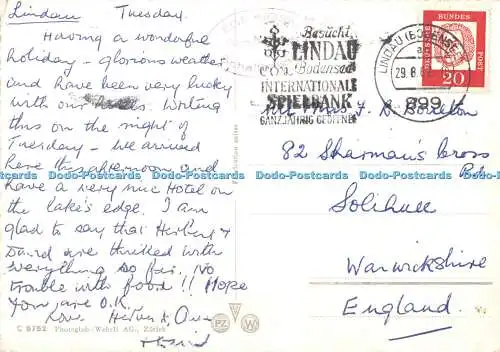 Lindau Tuesday.
Having a wonderful
holiday - glorious weather
and have been very lucky
with our hotels. Writing
this on the night of
Tuesday - we arrived
here this afternoon and
have a very nice Hotel on
the lake's edge. I am
glad to say that Herbert &
David are thrilled with
everything so far. No
trouble with food!! Hope
you are O.K.
Love
C 8752 Photoglob-Wehrli AG., Zürich
PZ W
Besucht
LINDAU
Bodensee
INTERNATIONALE
SPIELBANK
GANZJÄHRIG GEÖFFNET
LINDAU (BODENSEE)
29.8.
899
DEUTSCHE BUNDESPOST
20
J. D. Borlston
82 Sharman's Cross
Rd.
Solihull
Warwickshire
England.
Dodo-Postcards Dodo-Postcards Dodo-Postcards Dodo-Postcards